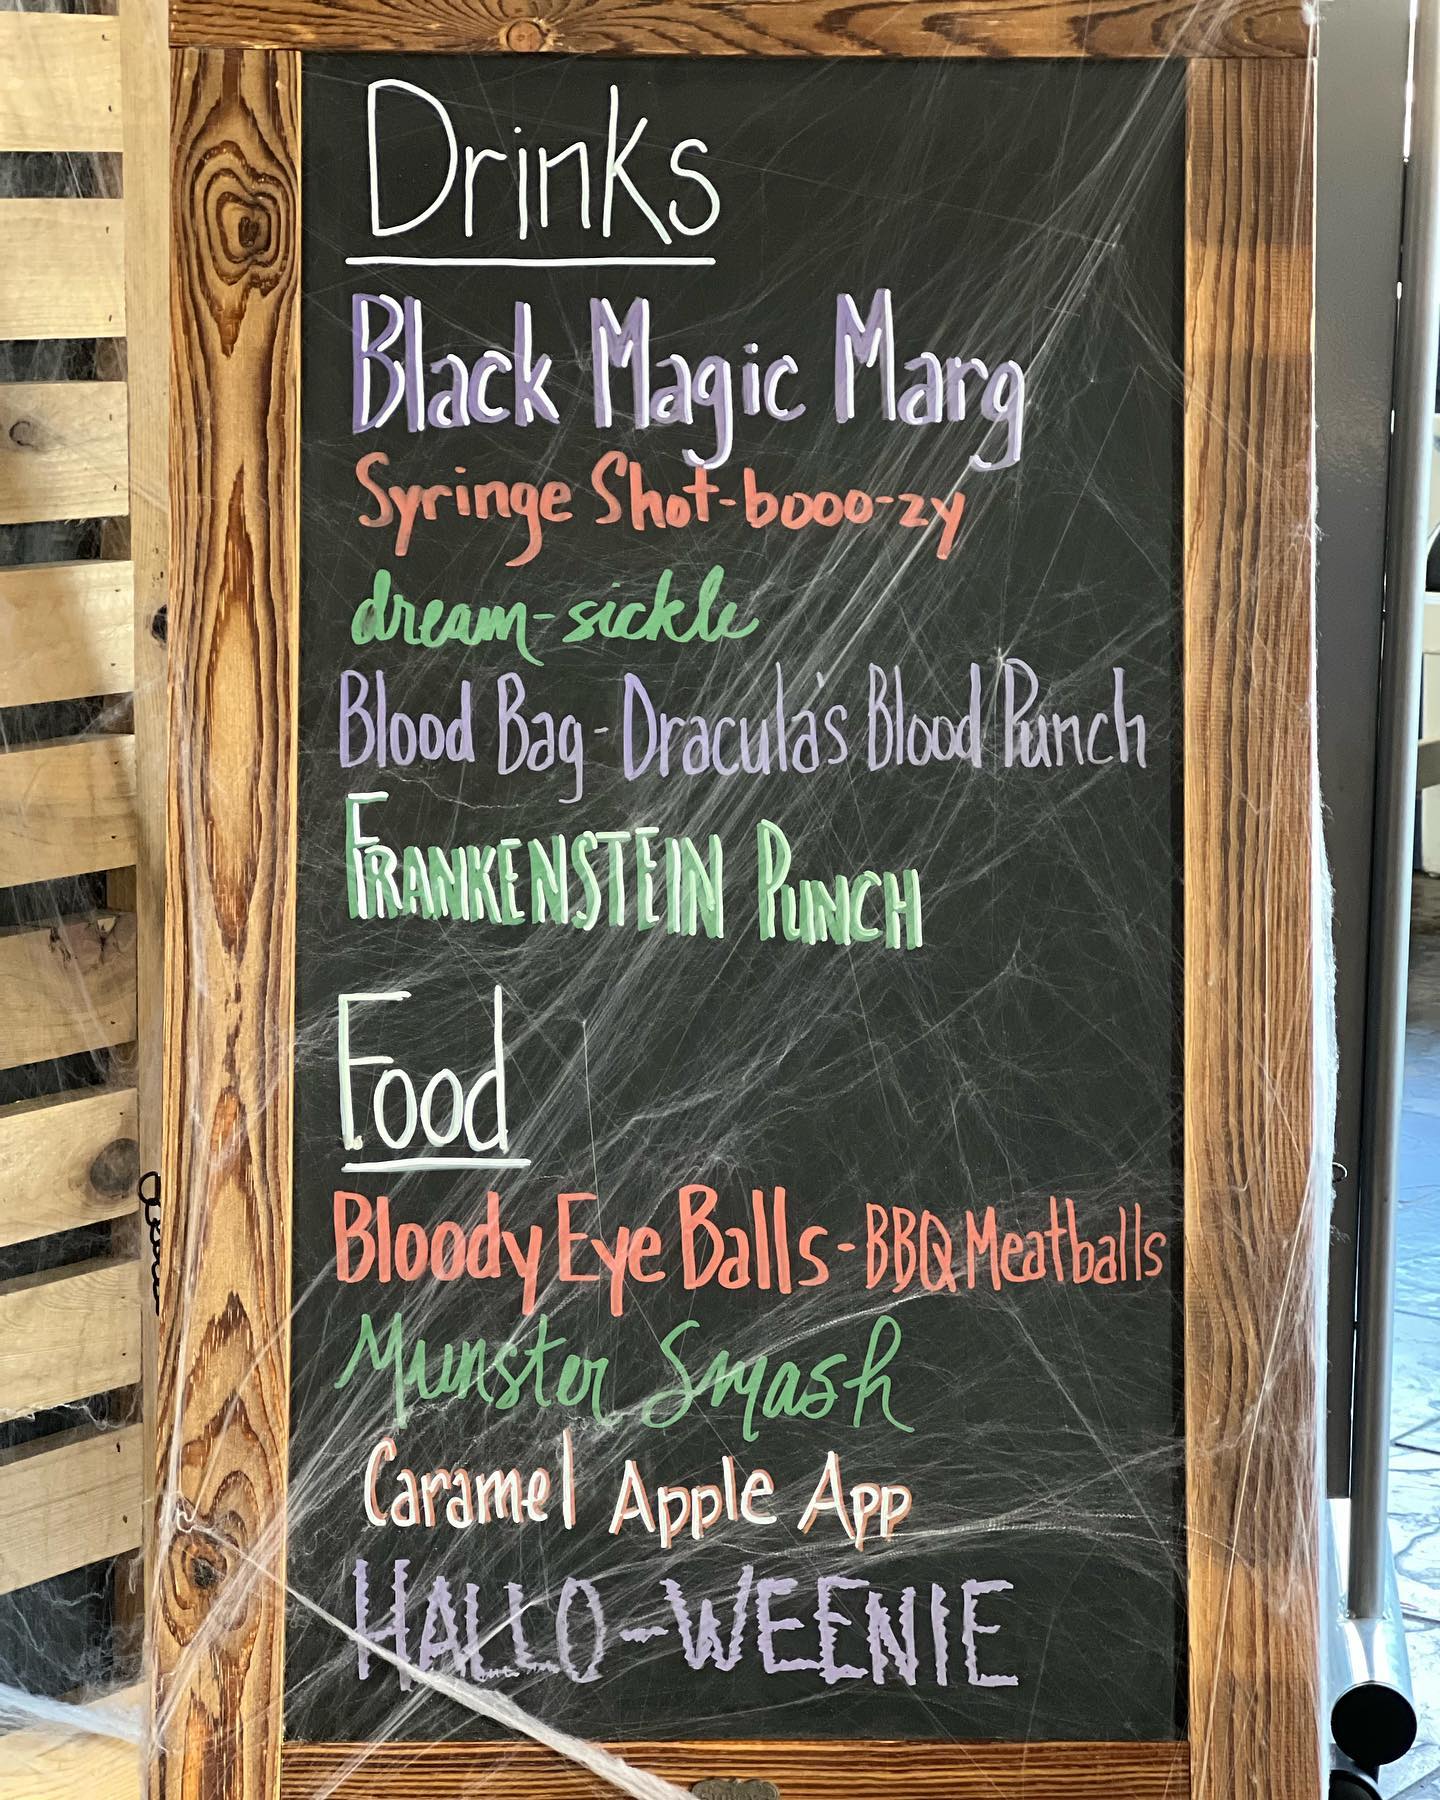 Drinks
Black Magic Marg
Syringe Shot-booo-zy
dream-sickle
Blood Bag-Dracula's Blood Punch
FRANKENSTEIN PUNCH
Food
Bloody Eye Balls-BBQ Meatballs
Munster Smash
Caramel Apple App
HALLO-WEENIE